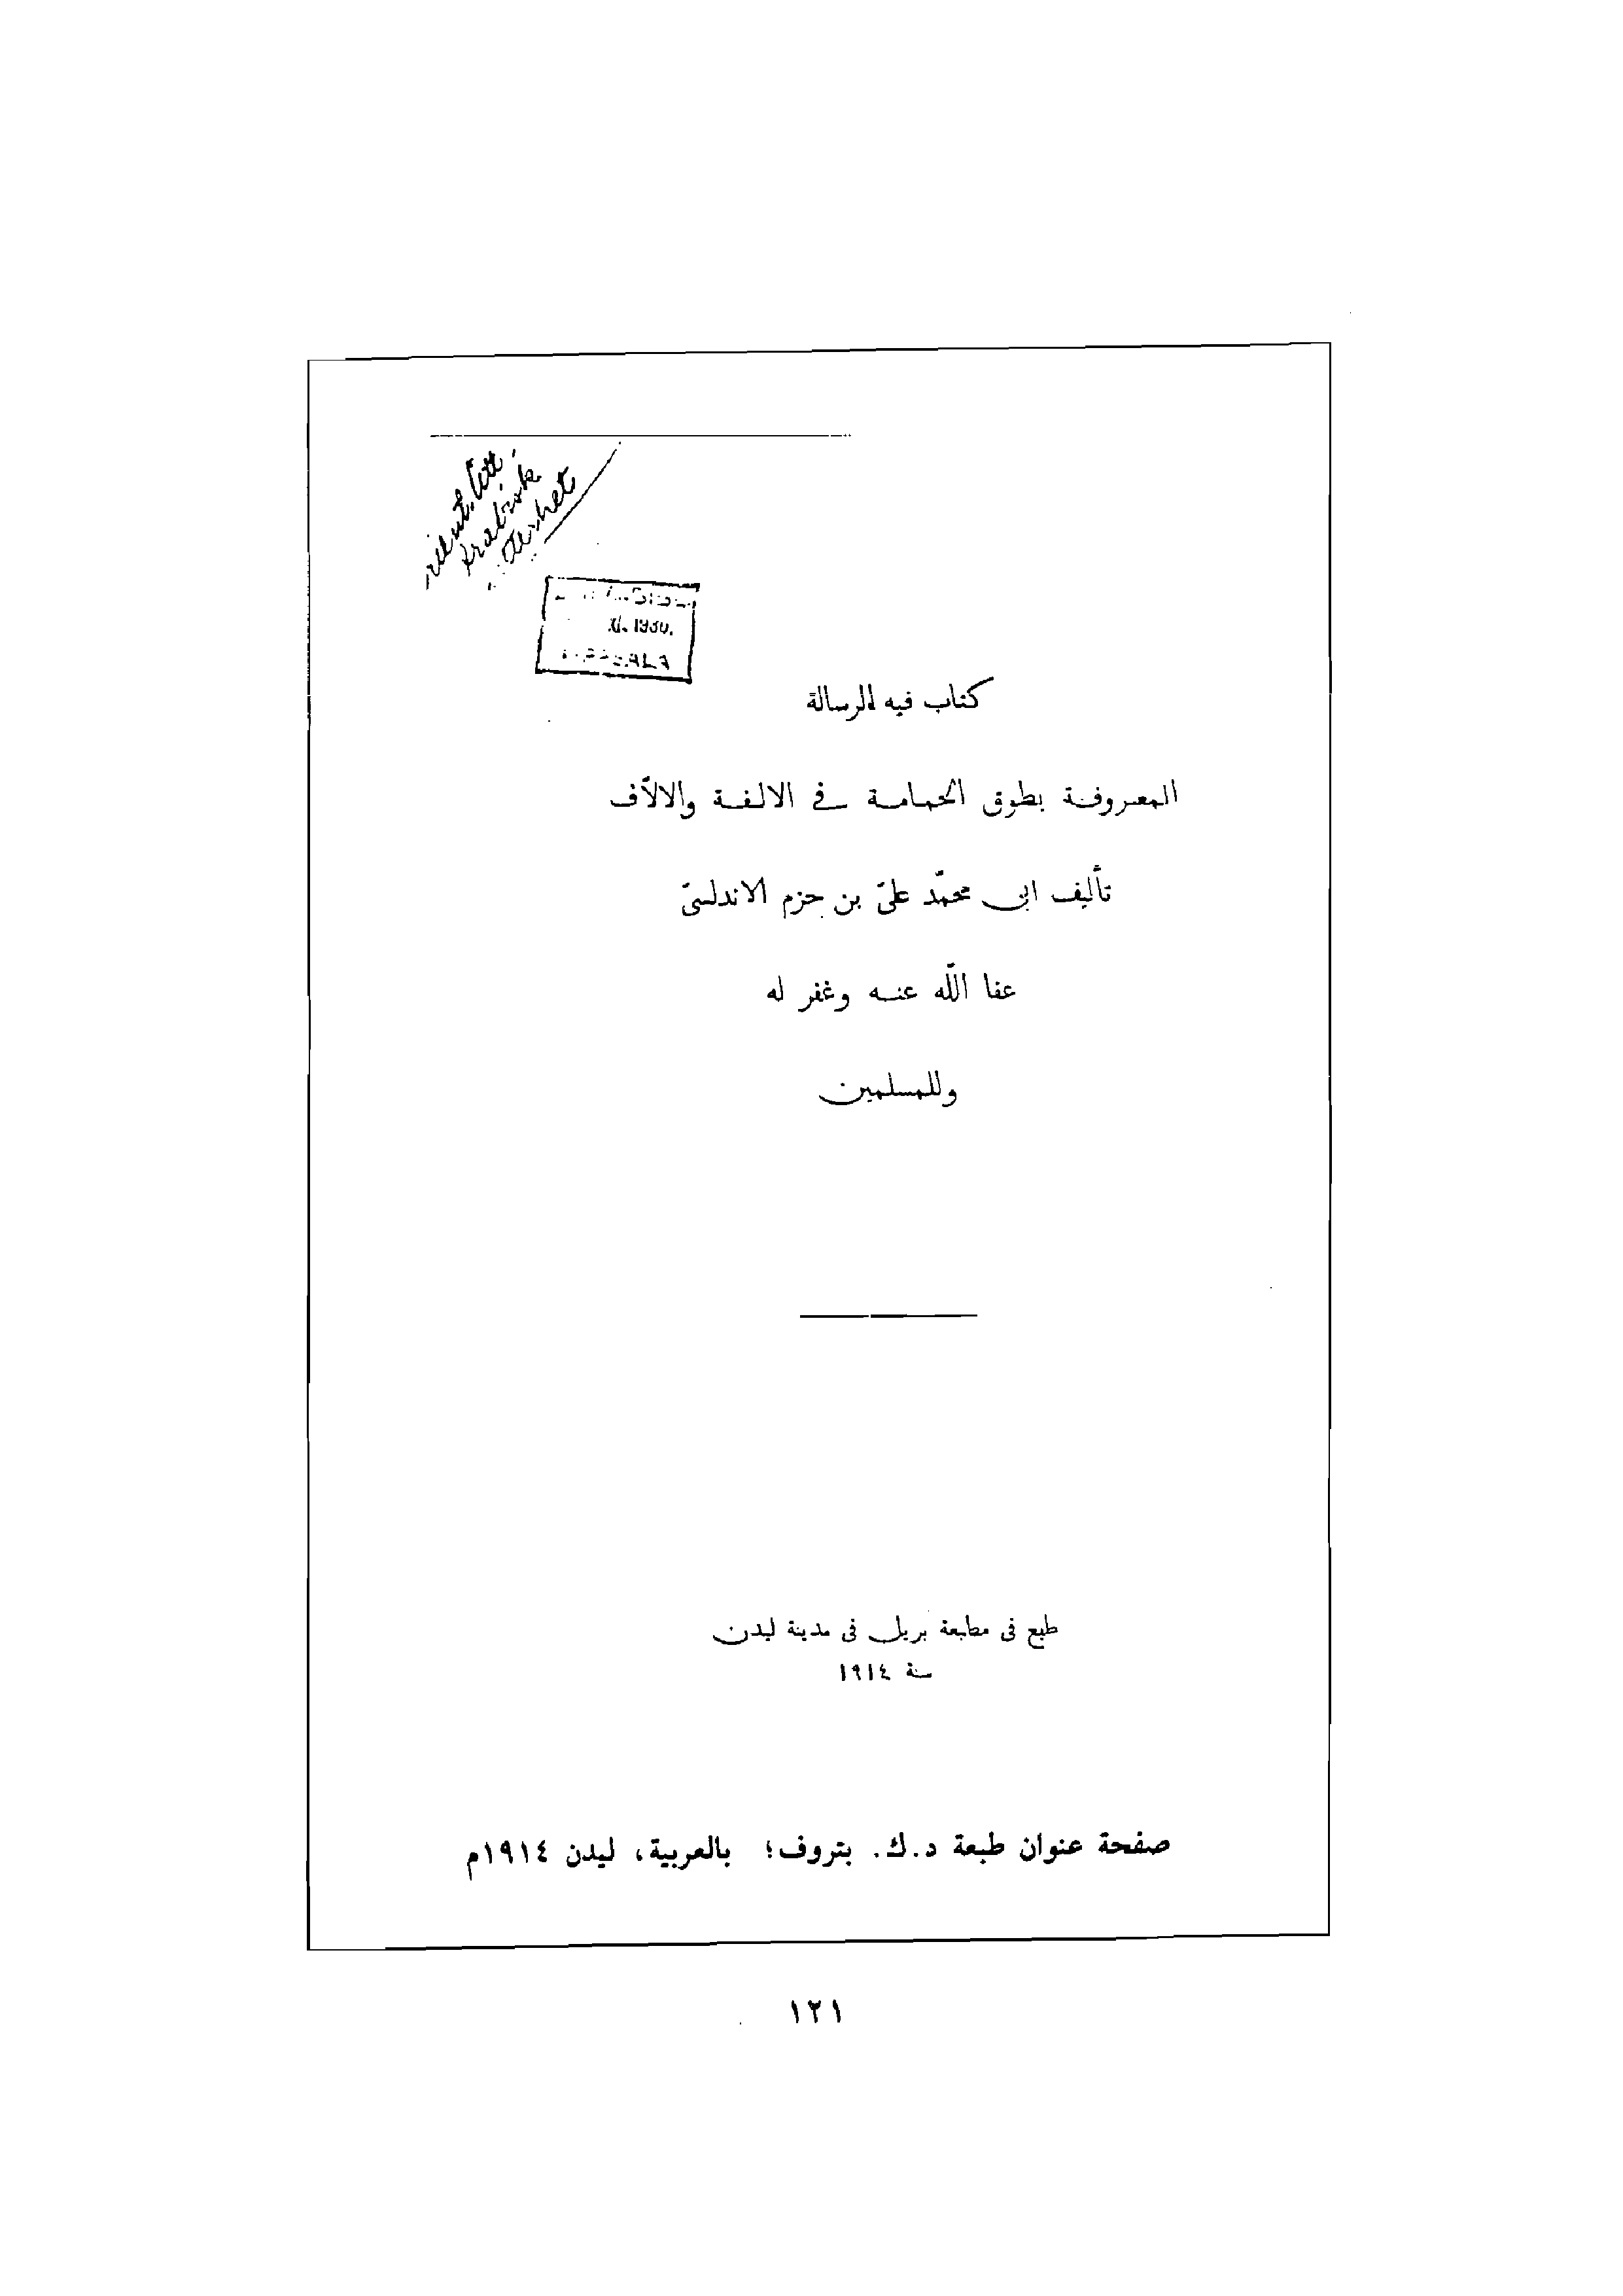 كتاب فيه الرسالة
المعروفة بطوق الحمامة في الالفة والالاّف
تأليف ابى محمّد علىّ بن حزم الاندلسىّ
عفا اللّه عنه وغفر له
وللمسلمين
طبع فى مطبعة بريل فى مدينة ليدن
سنة ١٩١٤
صفحة عنوان طبعة د.ك. بتروف؛ بالعربية، ليدن ١٩١٤م
١٢١